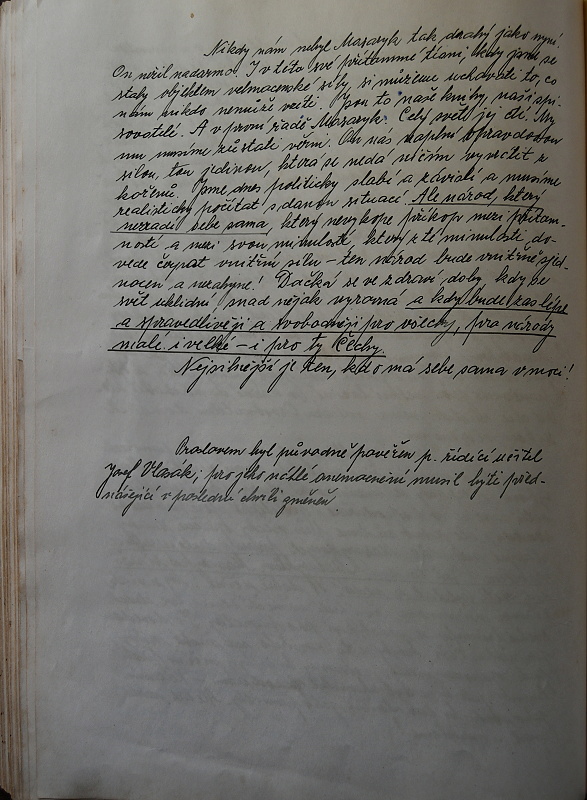 Nikdy nám nebyl Masaryk tak drahý jako nyní.
On nežil nadarmo. I v této své přítomné tísni, kdy jsme se
stali objektem velmocenské síly, si můžeme uchovati to, co
nám nikdo nemůže vzíti. Jsou to naše knihy, naši spi-
sovatelé. A v první řadě Masaryk. Celý svět jej ctí. My
mu musíme zůstati věrni. On nás naplní opravdovou
silou, tou jedinou, která se nedá ničím vyvrátit z
kořenů. Jsme dnes politicky slabí a závislí a musíme
realisticky počítat s danou situací. Ale národ, který
nezradí sebe sama, který nevykope příkopu mezi přítom-
ností a mezi svou minulostí, který z té minulosti do-
vede čerpat vnitřní sílu – ten národ bude vnitřně sjed-
nocen a nezahyne! Dočká se ve zdraví doby, kdy se
svět uklidní, snad nějak vyrovná a kdy bude zas lépe
a spravedlivěji a svobodněji pro všecky, pro národy
malé i velké – i pro ty Čechy.
Nejsilnější je ten, kdo má sebe sama v moci!
Proslovem byl původně pověřen p. řídící učitel
Josef Vlasák; pro jeho náhlé onemocnění musil býti před-
nášející v poslední chvíli změněn.